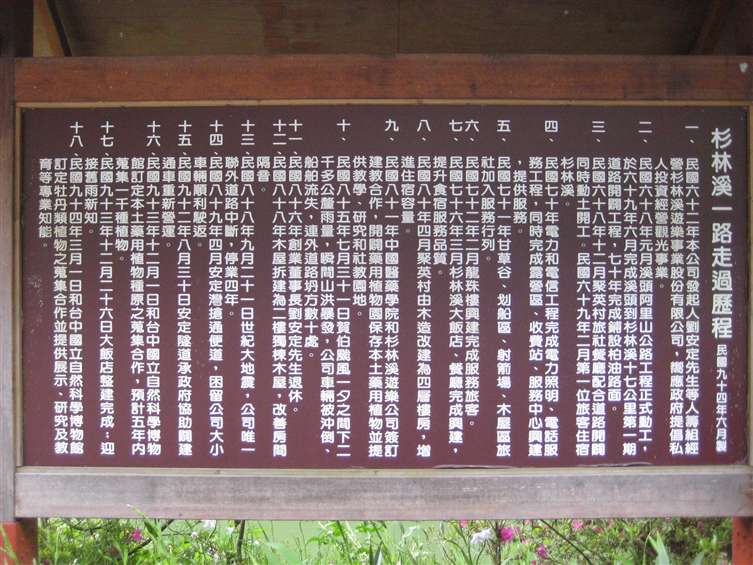 杉林溪一路走過歷程
民國九十四年六月製
一、民國六十二年本公司發起人劉安定先生等人籌組經
營杉林溪遊樂事業股份有限公司，嚮應政府提倡私
人投資經營觀光事業。
二、民國六十八年元月溪頭阿里山公路工程正式動工，
於六十九年六月完成溪頭到杉林溪十七公里第一期
道路開闢工程，七十年完成鋪設柏油路面。
三、民國六十八年十二月聚英村旅社餐廳配合道路開闢
同時動土開工。民國六十九年二月第一位旅客住宿
杉林溪。
四、民國七十年電力和電信工程完成電力照明、電話服
務工程，同時完成露營區、收費站、服務中心興建
，提供服務。
五、民國七十一年甘草谷、划船區、射箭場、木屋區旅
社加入服務行列。
六、民國七十二年二月龍珠樓興建完成服務旅客。
七、民國七十六年三月杉林溪大飯店、餐廳完成興建，
提升食宿服務品質。
八、民國八十年四月聚英村由木造改建為四層樓房，增
進住宿容量。
九、民國八十一年中國醫藥學院和杉林溪遊樂公司簽訂
建教合作，開闢藥用植物園保存本土藥用植物並提
供教學、研究和社教園地。
十、民國八十五年七月三十一日賀伯颱風一夕之間下二
千多公釐雨量，瞬間山洪暴發，公司車輛被沖倒、
船舶流失，連外道路坍方數十處。
十一、民國八十六年創業董事長劉安定先生退休。
十二、民國八十八年木屋拆建為二樓獨棟木屋，改善房間
隔音。
十三、民國八十八年九月二十一日世紀大地震，公司唯一
聯外道路中斷，停業四年。
十四、民國八十九年四月安定灣搶通便道，困留公司大小
車輛順利駛返。
十五、民國九十二年八月三十日安定隧道承政府協助闢建
通車重新營運。
十六、民國九十三年十二月一日和台中國立自然科學博物
館訂定本土藥用植物種原之蒐集合作，預計五年內
蒐集一千種植物。
十七、民國九十三年十二月二十六日大飯店整建完成；迎
接舊雨新知。
十八、民國九十四年三月一日和台中國立自然科學博物館
訂定牡丹類植物之蒐集合作並提供展示、研究及教
育等專業知能。